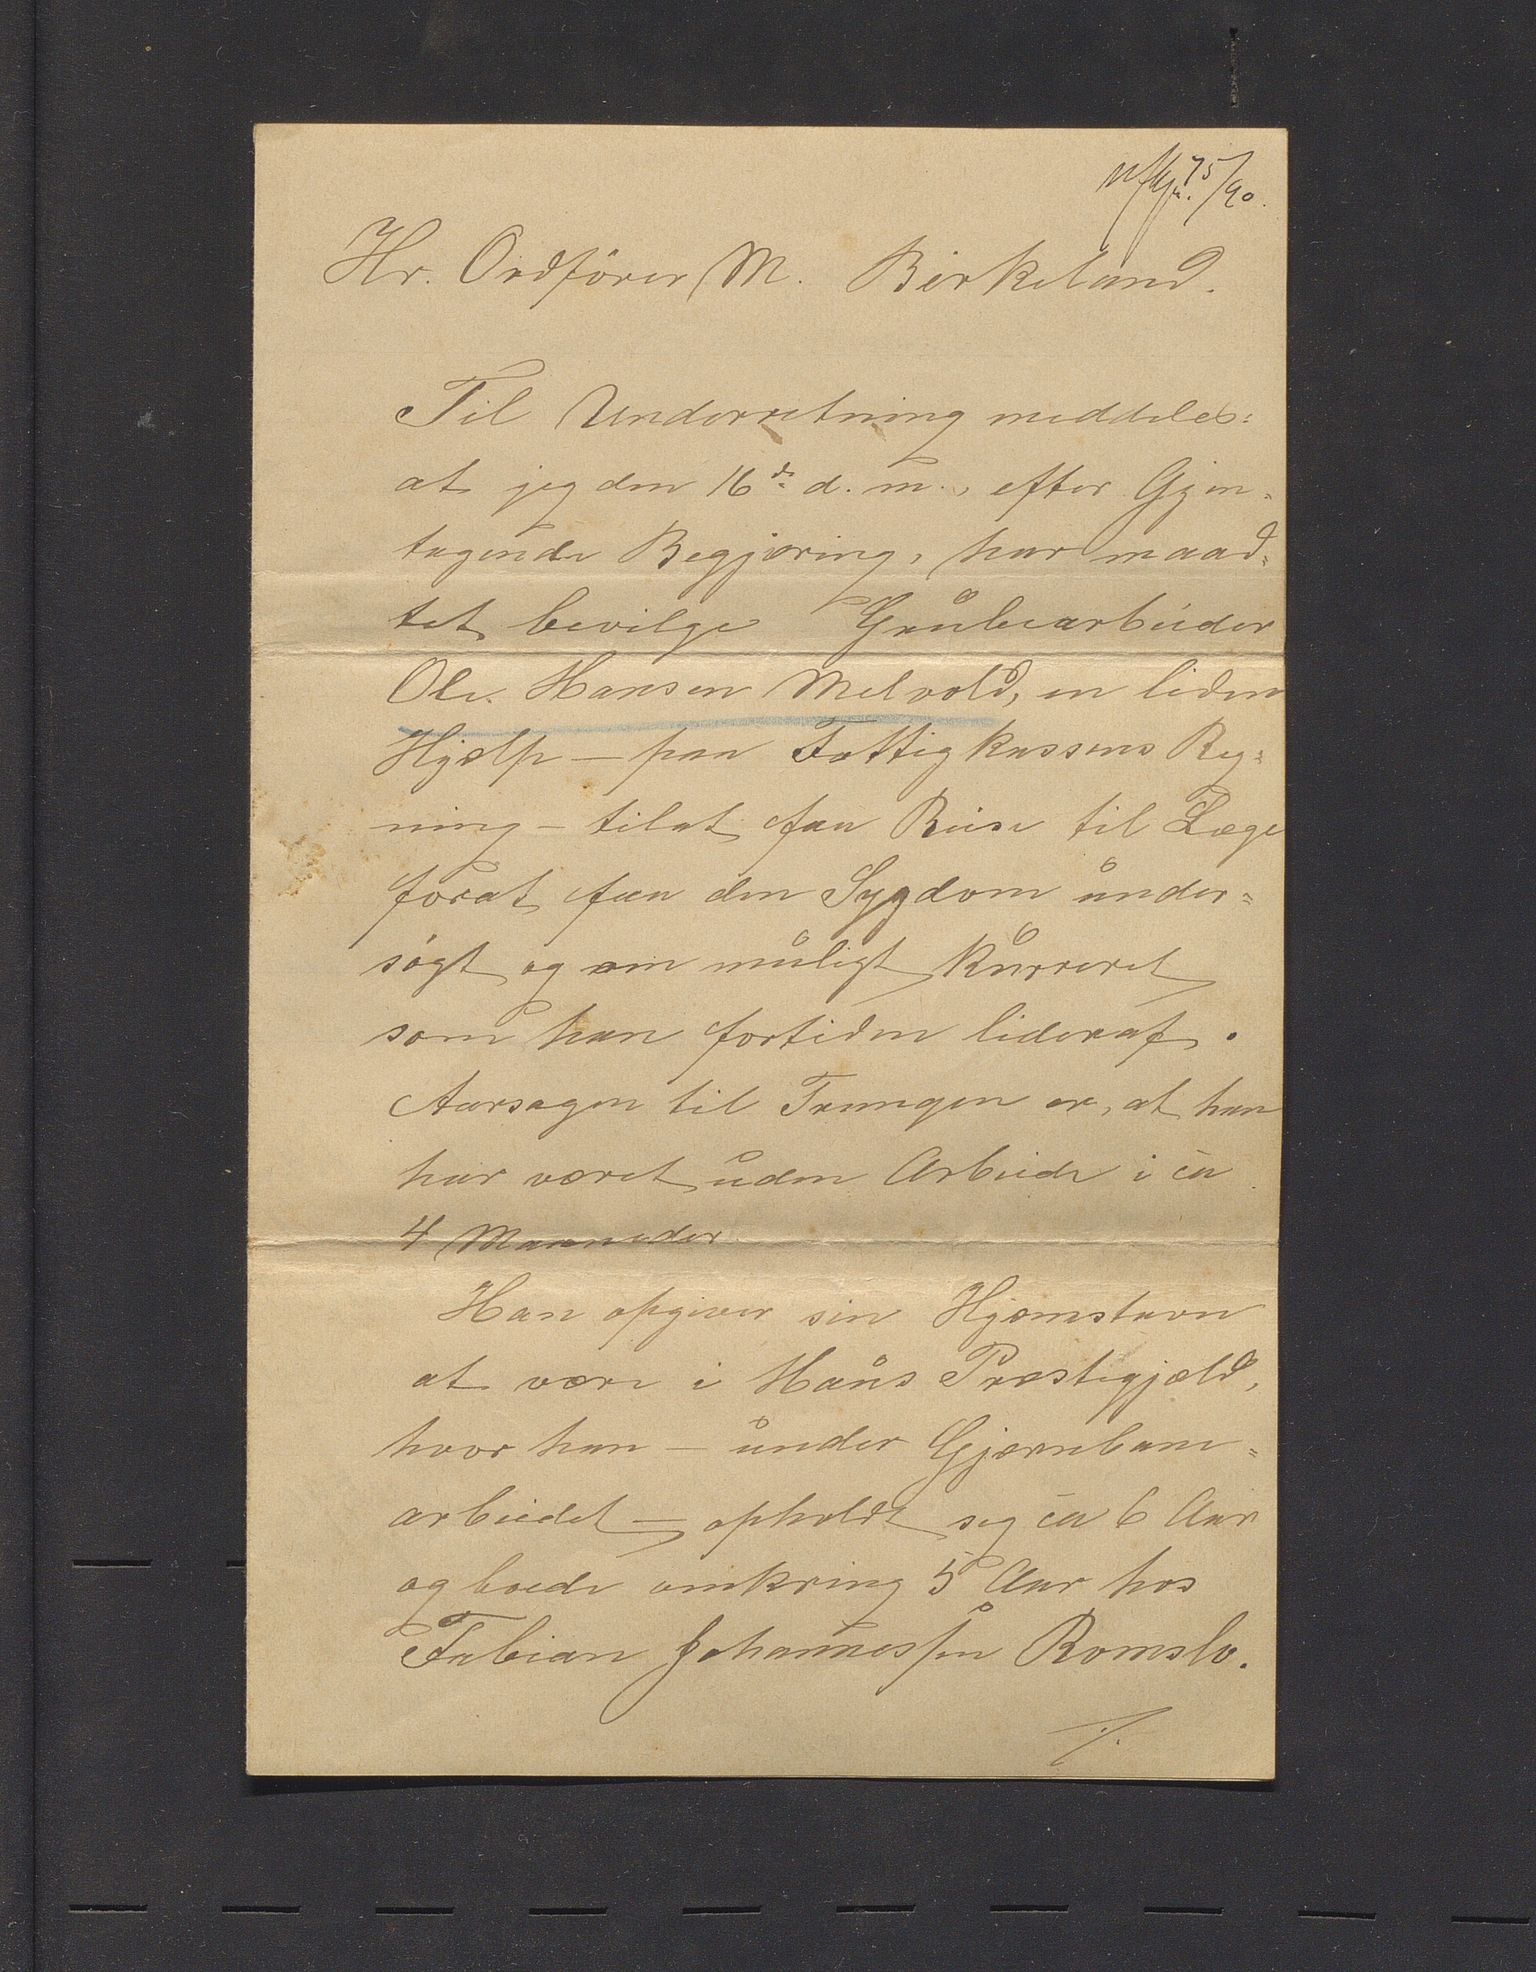 75/90.
Hr. Ordförer M. Birkeland.
Til Underretning meddeles:
at jeg den 16de d. m., efter Gjen-
tagende Begjæring, har maad-
tet bevilge Grubearbeider
Ole Hansen Melvold, en liden
Hjælp – paa Fattigkassens Reg-
ning – tilat faa Reise til Læge
forat faa den Sygdom under-
søgt og om muligt kurreret
som han fortiden lideraf.
Aarsagen til Trangen er, at han
har været uden Arbeide i ca
4 Maaneder
Han opgiver sin Hjemstavn
at være i Haus Præstegjæld,
hvor han – under Gjærnbane-
arbeidet – opholdt seg ca 6 Aar
og boede omkring 5 Aar hos
Fabian Johannessen Romslo.
./.